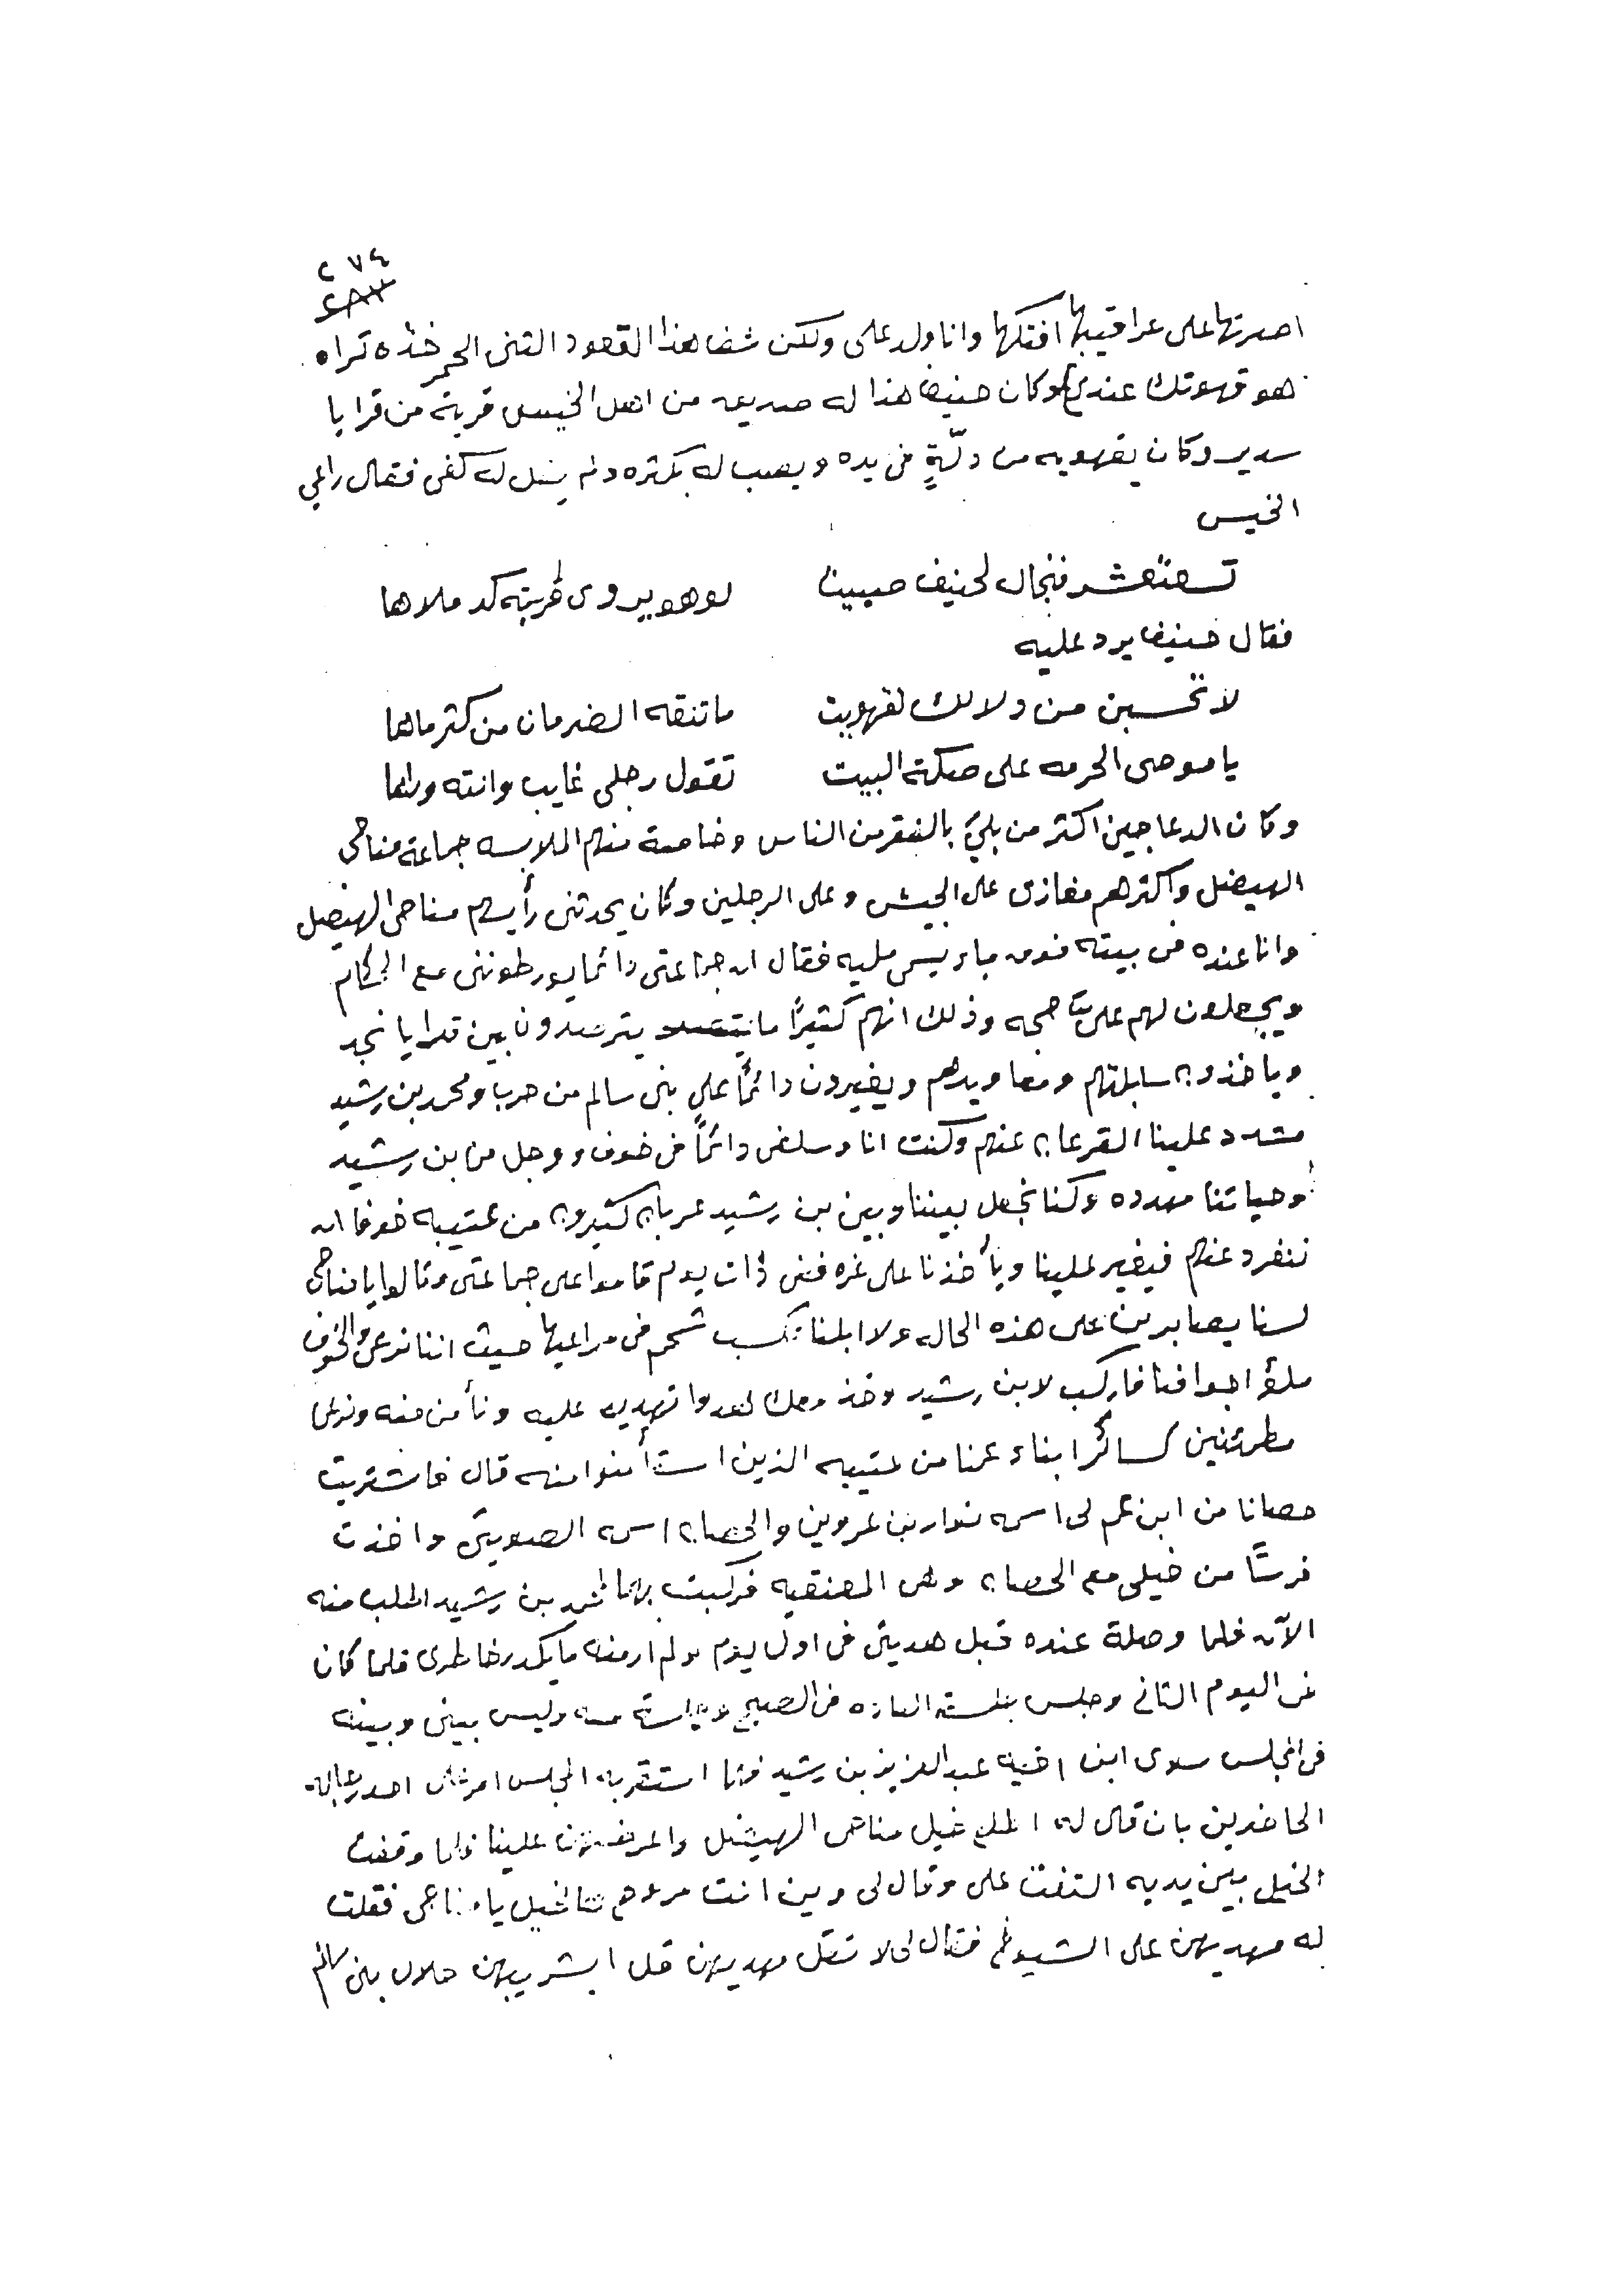 ٢٧٤
اصدرتها على عراقيبها افتكها وانا ولد على ولكن شف هذا القعود الثنى الحمر خذه تراه
هو قهوتك عندي وكان حنيف هذا له صديق من اهل الخيس قرية من قرايا
سدير وكان يقهويه من دلّةٍ فى يده ويصب له بكثره ولم يقل له كفى فقال راعي
الخيس
تسعتعشر فنجال لحنيف صبيت لو هو يروى قربته كد ملاها
فقال حنيف يرد عليه
لا تحسبن من دلالك تقهويت ما تنقه الضرمان من كثر ماها
يا موصى الحرمه على صكة البيت تقول رجلى غايب وانته وراها
وكان الدعاجين اكثر من بليَ بالفقر من الناس وخاصة منهم الملابسه جماعة مناحى
الهيضل واكثرهم مغازى على الجيش وعلى الرجلين وكان يحدثنى رأيسهم مناحى الهيضل
وانا عنده فى بيته فوق ماء يسمى مليه فقال ان جماعتى دائما يورطوننى مع الحكام
ويجعلون لهم على حجه وذلك انهم كثيرًا ما يترصدون بين قرايا نجد
وياخذون سابلتهم ومعاويدهم ويغيرون دائمًا على بنى سالم من حرب ومحمد بن رشيد
مشدد علينا القرعان عنهم وكنت انا وسلفى دائمًا فى خوف ووجل من بن رشيد
وحياتنا مهدده وكنا نجعل بيننا وبين بن رشيد عربان كثيرون من عتيبه خوفا ان
ننفرد عنهم فيغير علينا ويأخذنا على غره ففى ذات يوم قاموا على جماعتى وقالوا يا مناحى
لسنا بصابرين على هذه الحاله ولا ابلنا تكسب شحم فى مراعيها حيث اننا نرعى والخوف
ملؤ اجوافنا فاركب لابن رشيد وخذ معك تهديه عليه ونأمن منه ونرعا
مطمئنين كسائر ابناء عمنا من عتيبه الذين استأمنوا منه قال فاشتريت
حصانا من ابن عم لى اسمه نوار بن عمروين والحصان اسمه الصويتى واخذت
فرسًا من خيلى مع الحصان وهى المعنقيه فركبت بهما لمحمد بن رشيد اطلب منه
الآن فلما وصلة عنده قبل هديتى فى اول يوم ولم ارمنه ما يكدر خاطرى فلما كان
فى اليوم الثانى وجلس جلسته العاده فى الصبح وليس بينى وبينه
فى المجلس سوى ابن اخيه عبد العزيز بن رشيد فلما استقر به المجلس امر على احد رجاله
الحاضرين بان قال له اطلع خيل مناحى الهيضل علينا فلما وقفت
الخيل بين يديه التفت على وقال لى وين انت الخيل يا مناحى فقلت
له مهديهن على الشيوخ فقال لى لا تقل مهديهن قل ابشر بهن حلال بنى سالم